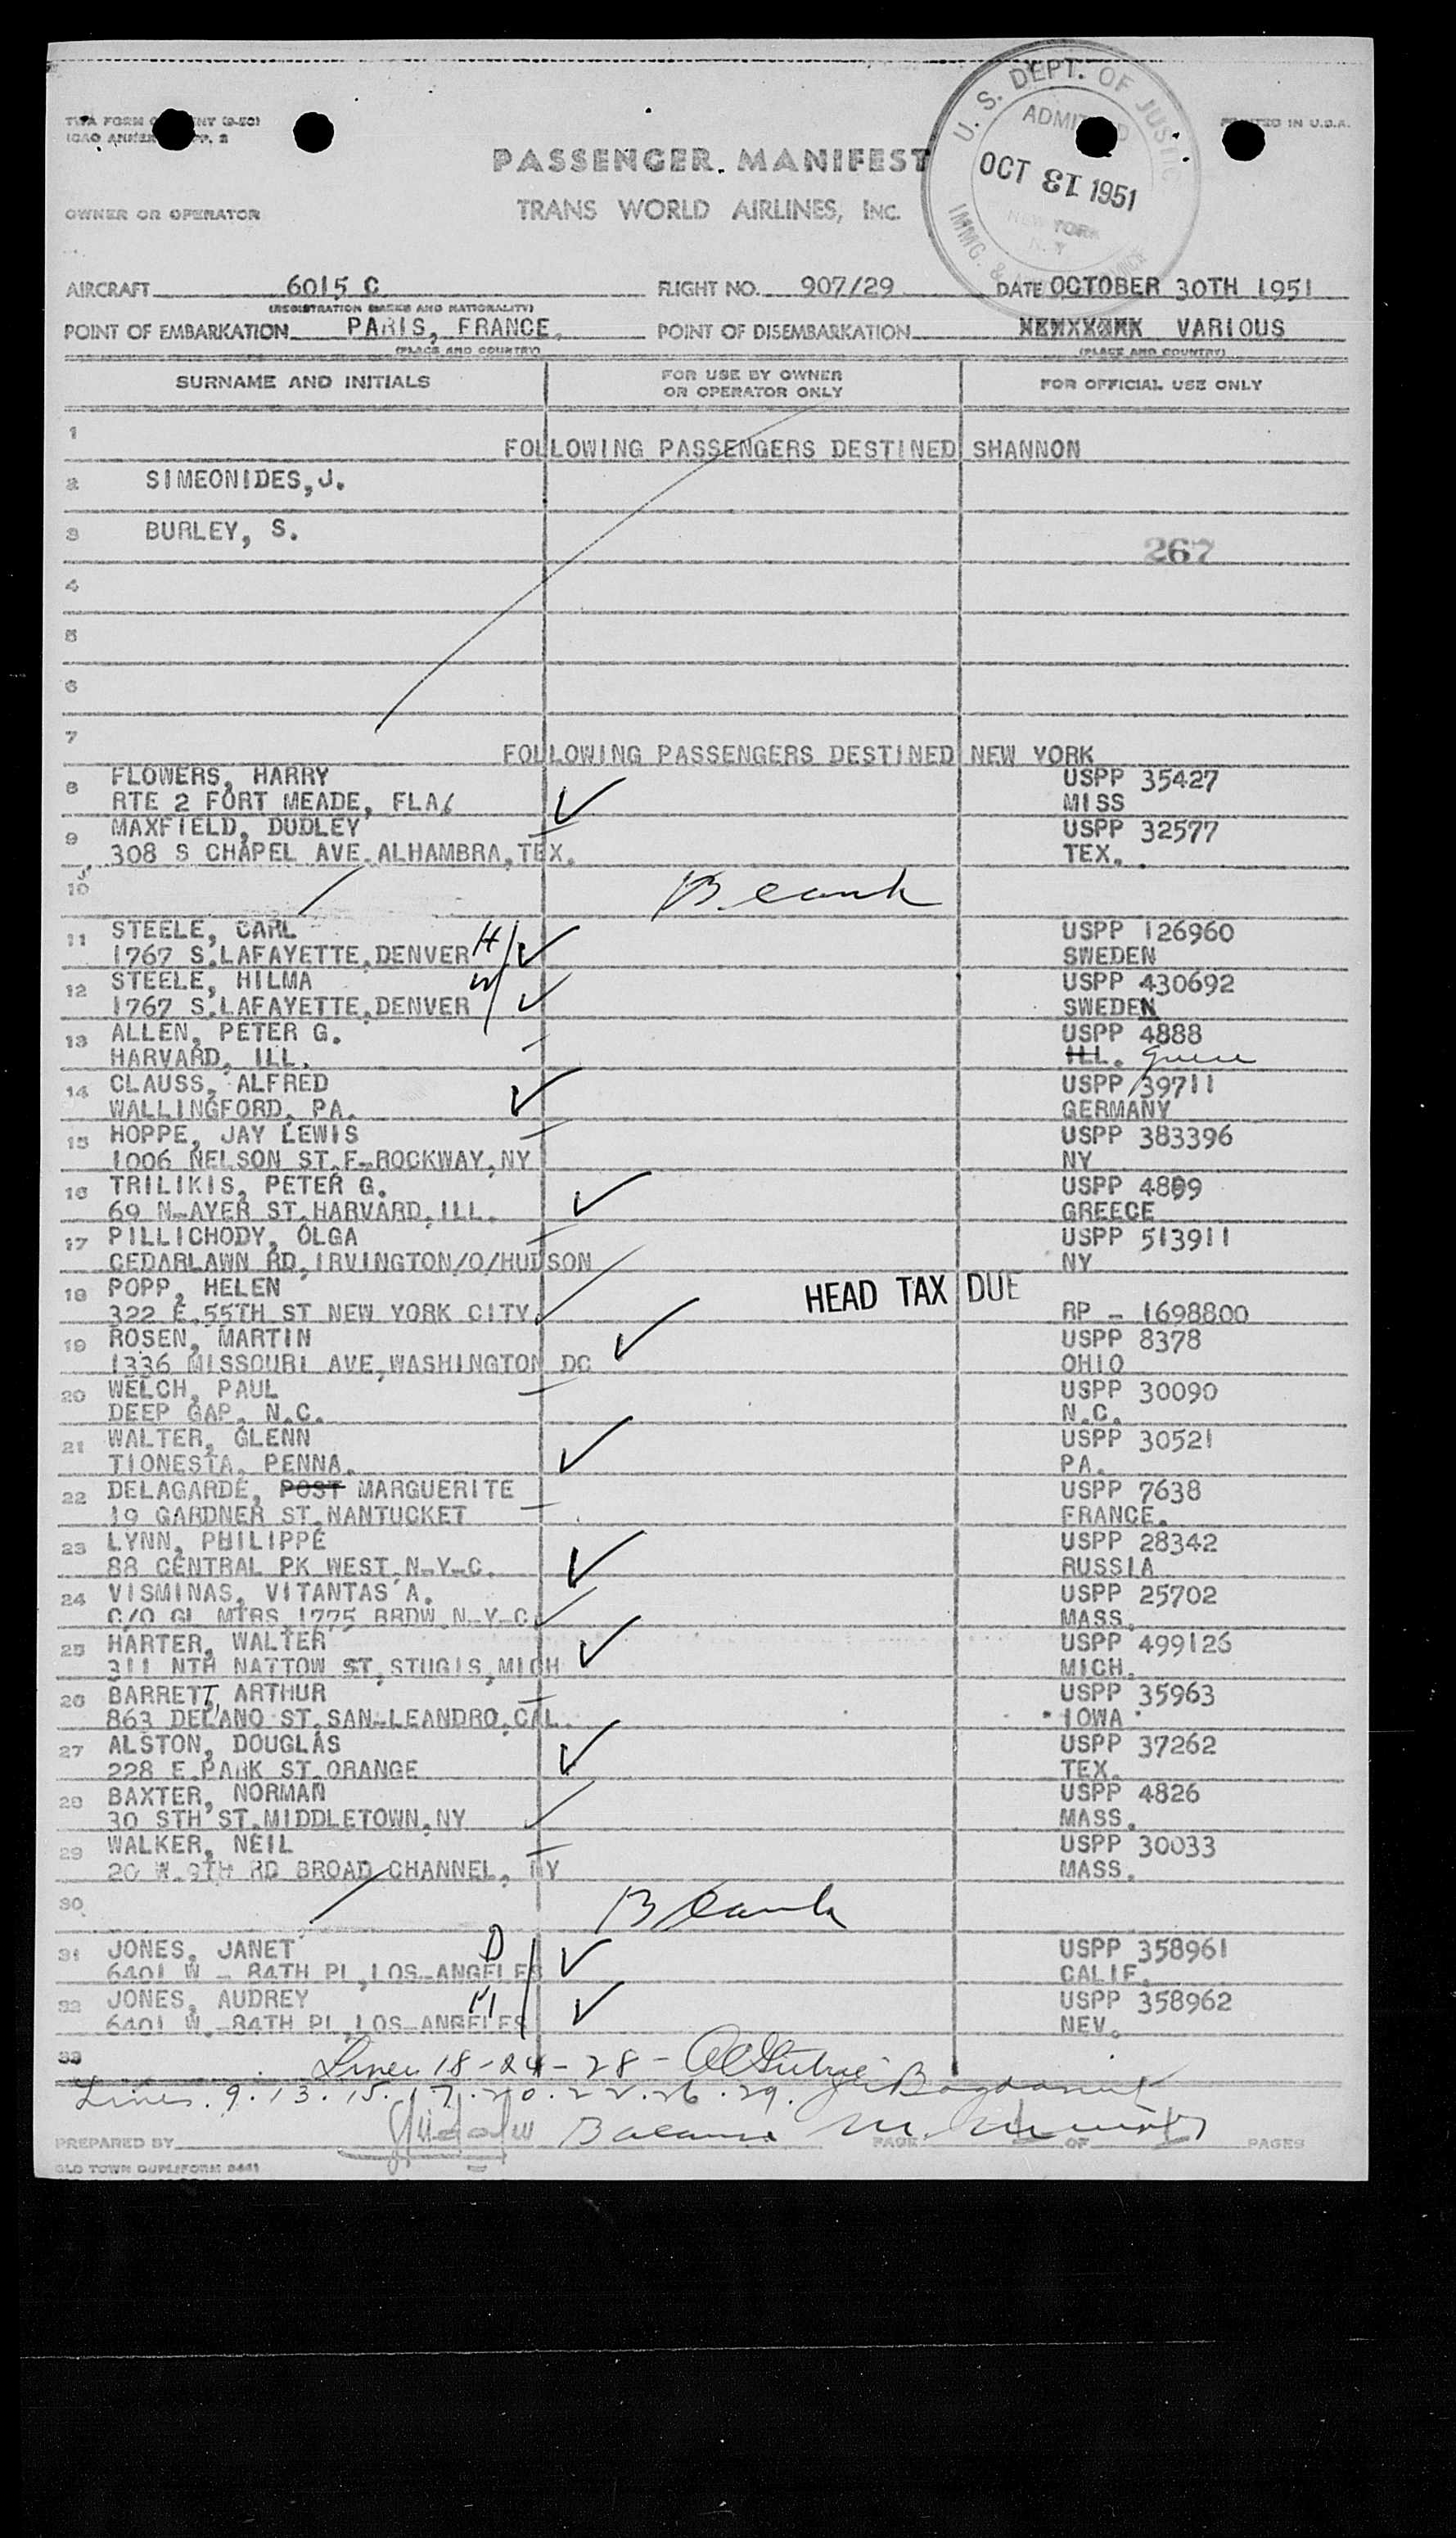 PRINTED IN U.S.A.
PASSENGER MANIFEST
TRANS WORLD AIRLINES, INC.
U. S. DEPT. OF JUSTICE
ADMITTED
OCT 31 1951
NEW YORK
N.Y
IMMG. &
OWNER OR OPERATOR
AIRCRAFT 6015 C FLIGHT NO. 907/29 DATE OCTOBER 30TH 1951
(REGISTRATION MARKS AND NATIONALITY)
POINT OF EMBARKATION PARIS, FRANCE. POINT OF DISEMBARKATION VARIOUS
(PLACE AND COUNTRY) (PLACE AND COUNTRY)
SURNAME AND INITIALS FOR USE BY OWNER OR OPERATOR ONLY FOR OFFICIAL USE ONLY
1 FOLLOWING PASSENGERS DESTINED SHANNON
2 SIMEONIDES,J.
3 BURLEY, S.
267
4
5
6
7 FOLLOWING PASSENGERS DESTINED NEW YORK
8 FLOWERS, HARRY USPP 35427
RTE 2 FORT MEADE, FLA MISS
9 MAXFIELD, DUDLEY USPP 32577
308 S CHAPEL AVE.ALHAMBRA,TEX. TEX.
10 Blank
11 STEELE, CARL H USPP 126960
1767 S.LAFAYETTE,DENVER SWEDEN
12 STEELE, HILMA W USPP 430692
1767 S.LAFAYETTE,DENVER SWEDEN
13 ALLEN, PETER G. USPP 4888
HARVARD, ILL. ILL. Greece
14 CLAUSS, ALFRED USPP 39711
WALLINGFORD, PA. GERMANY
15 HOPPE, JAY LEWIS USPP 383396
1006 NELSON ST.F-ROCKWAY,NY NY
16 TRILIKIS, PETER G. USPP 4899
69 N-AYER ST.HARVARD,ILL. GREECE
17 PILLICHODY, OLGA USPP 513911
CEDARLAWN RD,IRVINGTON/O/HUDSON NY
18 POPP, HELEN HEAD TAX DUE
322 E.55TH ST NEW YORK CITY. RP - 1698800
19 ROSEN, MARTIN USPP 8378
1336 MISSOURI AVE,WASHINGTON DC OHIO
20 WELCH, PAUL USPP 30090
DEEP GAP, N.C. N.C.
21 WALTER, GLENN USPP 30521
TIONESTA, PENNA. PA.
22 DELAGARDE, POST MARGUERITE USPP 7638
19 GARDNER ST.NANTUCKET FRANCE.
23 LYNN, PHILIPPE USPP 28342
88 CENTRAL PK WEST.N-Y-C. RUSSIA
24 VISMINAS, VITANTAS A. USPP 25702
C/O GL MTRS 1775 BRDW.N-Y-C. MASS.
25 HARTER, WALTER USPP 499126
311 NTH NATTOW ST,STUGIS,MICH MICH.
26 BARRETT, ARTHUR USPP 35963
863 DELANO ST.SAN-LEANDRO,CAL. IOWA
27 ALSTON, DOUGLAS USPP 37262
228 E.PARK ST.ORANGE TEX.
28 BAXTER, NORMAN USPP 4826
30 STH ST.MIDDLETOWN,NY MASS.
29 WALKER, NEIL USPP 30033
20 W.9TH RD BROAD CHANNEL, NY MASS.
30 Blank
31 JONES, JANET D USPP 358961
6401 W - 84TH PL,LOS-ANGELES CALIF.
32 JONES, AUDREY M USPP 358962
6401 W.-84TH PL,LOS-ANGELES NEV.
33 Lines 18-24-28 -
Lines. 9.13.15.17.20.22.26.29.
Balance
PREPARED BY PAGE OF PAGES
OLD TOWN DUPLIFORM